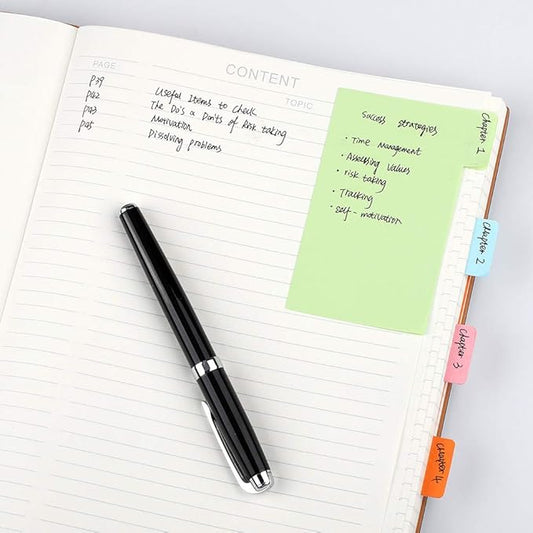 CONTENT
PAGE TOPIC
P39 Useful Items to Check
P42 The Do's & Don'ts of Risk taking
P43 Motivation
P45 Dissolving problems
Success strategies
• Time Management
• Assessing Values
• risk taking
• Tracking
• self-motivation
Chapter 1
Chapter 2
Chapter 3
Chapter 4